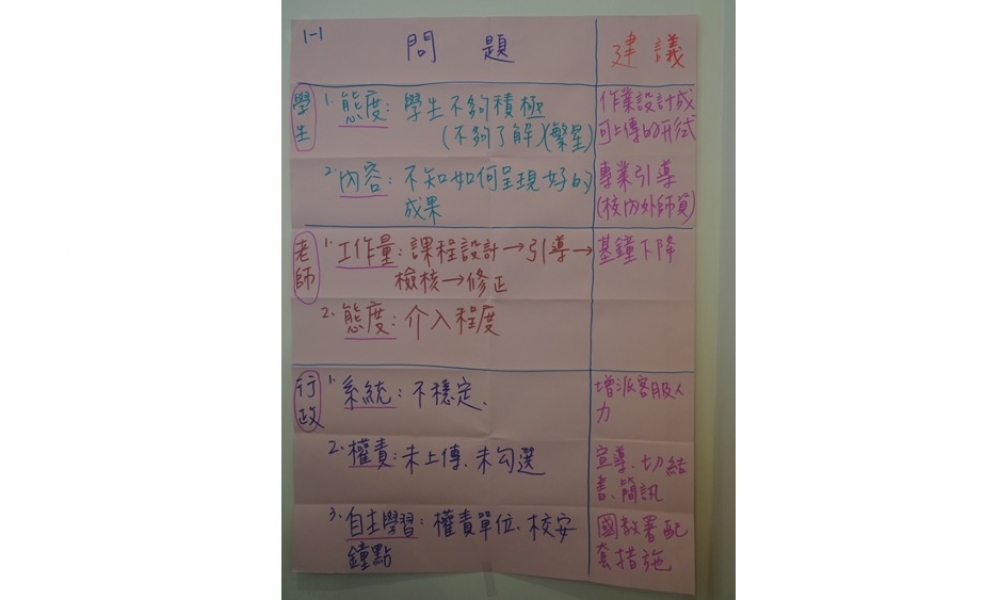 1-1
問題 建議
學生
1. 態度：學生不夠積極
(不夠了解)(繁星)
作業設計成
可上傳的形式
2. 內容：不知如何呈現好的
成果
專業引導
(校內外師資)
老師
1. 工作量：課程設計→引導→
檢核→修正
基鐘下降
2. 態度：介入程度
行政
1. 系統：不穩定、
增派客服人
力
2. 權責：未上傳、未勾選
宣導、切結
書、簡訊
3. 自主學習：權責單位、校安
鐘點
國教署配
套措施